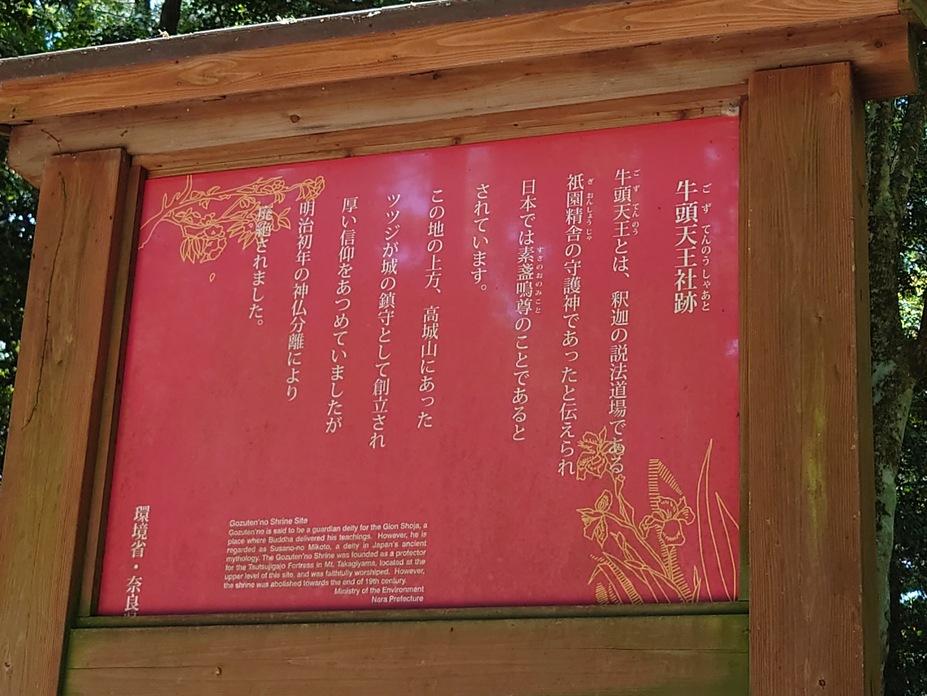 牛頭天王社跡
ごず てんのうしゃあと
牛頭天王とは、釈迦の説法道場である
ごずてんのう
祇園精舎の守護神であったと伝えられ
ぎおんしょうじゃ
日本では素盞嗚尊のことであると
すさのおのみこと
されています。
この地の上方、高城山にあった
ツツジが城の鎮守として創立され
厚い信仰をあつめていましたが
明治初年の神仏分離により
廃絶されました。
環境省・奈良県
Gozuten'no Shrine Site
Gozuten'no is said to be a guardian deity for the Gion Shoja, a
place where Buddha delivered his teachings. However, he is
regarded as Susano-no Mikoto, a deity in Japan's ancient
mythology. The Gozuten'no Shrine was founded as a protector
for the Tsutsujigajo Fortress in Mt. Takagiyama, located at the
upper level of this site, and was faithfully worshiped. However,
the shrine was abolished towards the end of 19th century.
Ministry of the Environment
Nara Prefecture